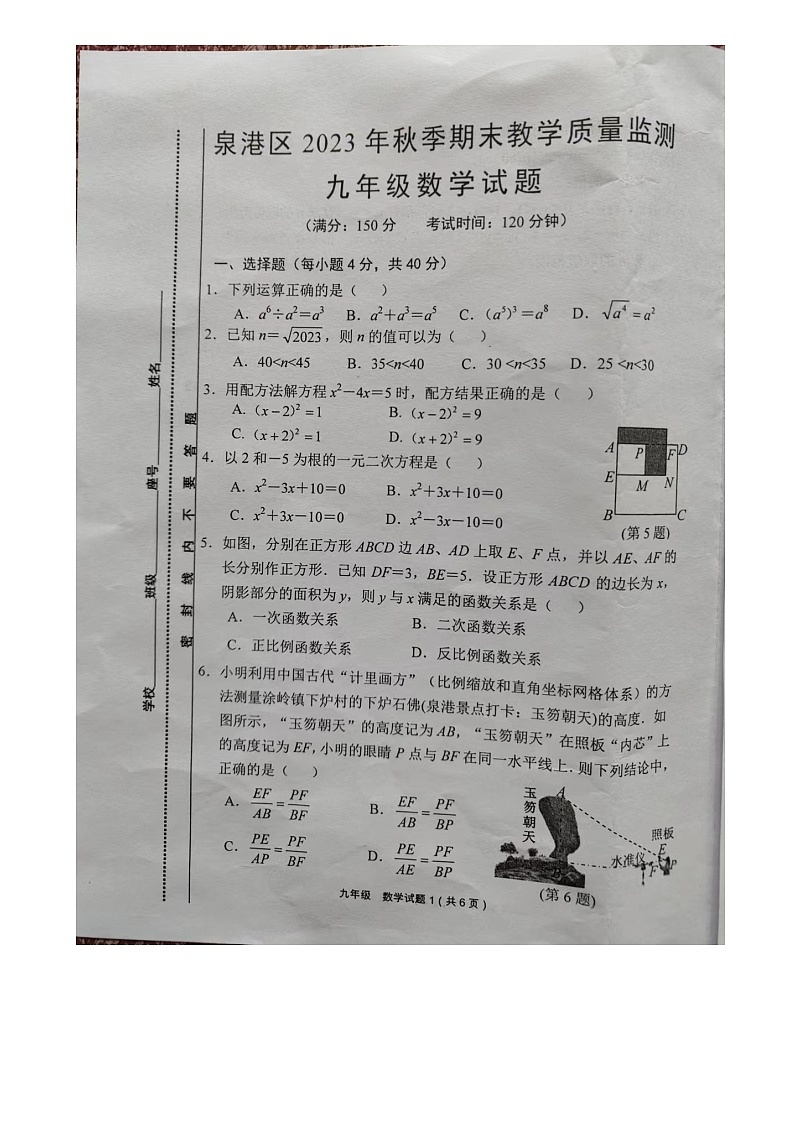 泉港区 2023 年秋季期末教学质量监测
九年级数学试题
（满分：150 分 考试时间：120 分钟）
一、选择题（每小题 4 分，共 40 分）
1．下列运算正确的是（ ）
A．a⁶÷a²=a³ B．a²+a³=a⁵ C．（a⁵)³=a⁸ D．√a⁴=a²
2．已知 n=√2023，则 n 的值可以为（ ）
A．40<n<45 B．35<n<40 C．30 <n<35 D．25 <n<30
3．用配方法解方程 x²－4x＝5 时，配方结果正确的是（ ）
A.（x－2)²＝1 B.（x－2)²＝9
C.（x＋2)²＝1 D.（x＋2)²＝9
4．以 2 和－5 为根的一元二次方程是（ ）
A．x²－3x＋10＝0 B．x²＋3x＋10＝0
C．x²＋3x－10＝0 D．x²－3x－10＝0
A P F D
E M N
B C
(第 5 题)
5．如图，分别在正方形 ABCD 边 AB、AD 上取 E、F 点，并以 AE、AF 的
长分别作正方形．已知 DF＝3，BE＝5．设正方形 ABCD 的边长为 x，
阴影部分的面积为 y，则 y 与 x 满足的函数关系是（ ）
A．一次函数关系 B．二次函数关系
C．正比例函数关系 D．反比例函数关系
6．小明利用中国古代“计里画方”（比例缩放和直角坐标网格体系）的方
法测量涂岭镇下炉村的下炉石佛(泉港景点打卡：玉笏朝天)的高度．如
图所示，“玉笏朝天”的高度记为 AB，“玉笏朝天”在照板“内芯”上
的高度记为 EF，小明的眼睛 P 点与 BF 在同一水平线上．则下列结论中，
正确的是（ ）
A．EF/AB＝PF/BF B．EF/AB＝PF/BP
C．PE/AP＝PF/BF D．PE/AE＝PF/BP
玉笏朝天
A
B
照板
E
水准仪
F
P
(第 6 题)
九年级 数学试题 1（共 6 页）
学校 班级 座号 姓名
密 封 线 内 不 要 答 题